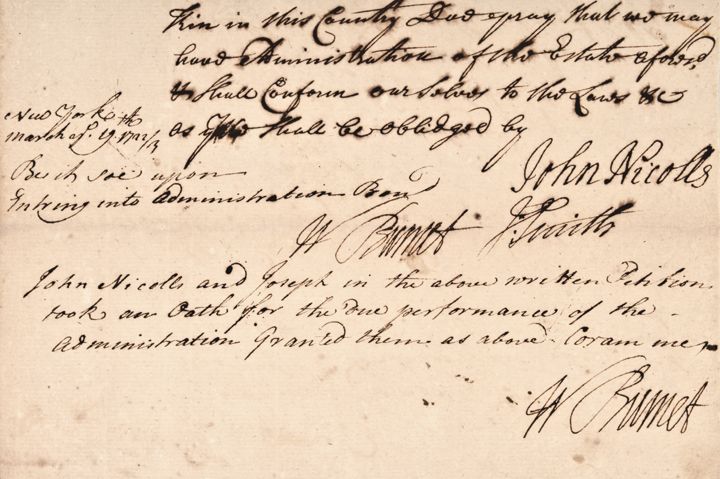 Kin in this Country Doe pray that we may
have Administration of the Estate aforesd
& Shall Conform our Selves to the Laws &c
as shall be obledged by
John Nicolls
New York
march ye 19th 1722/3
Be it soe upon
Entring into Administration Bond
W Burnet J Smith
John Nicolls and Joseph in the above written Petition
took an Oath for the due performance of the
Administration Granted them as above. Coram me
W Burnet